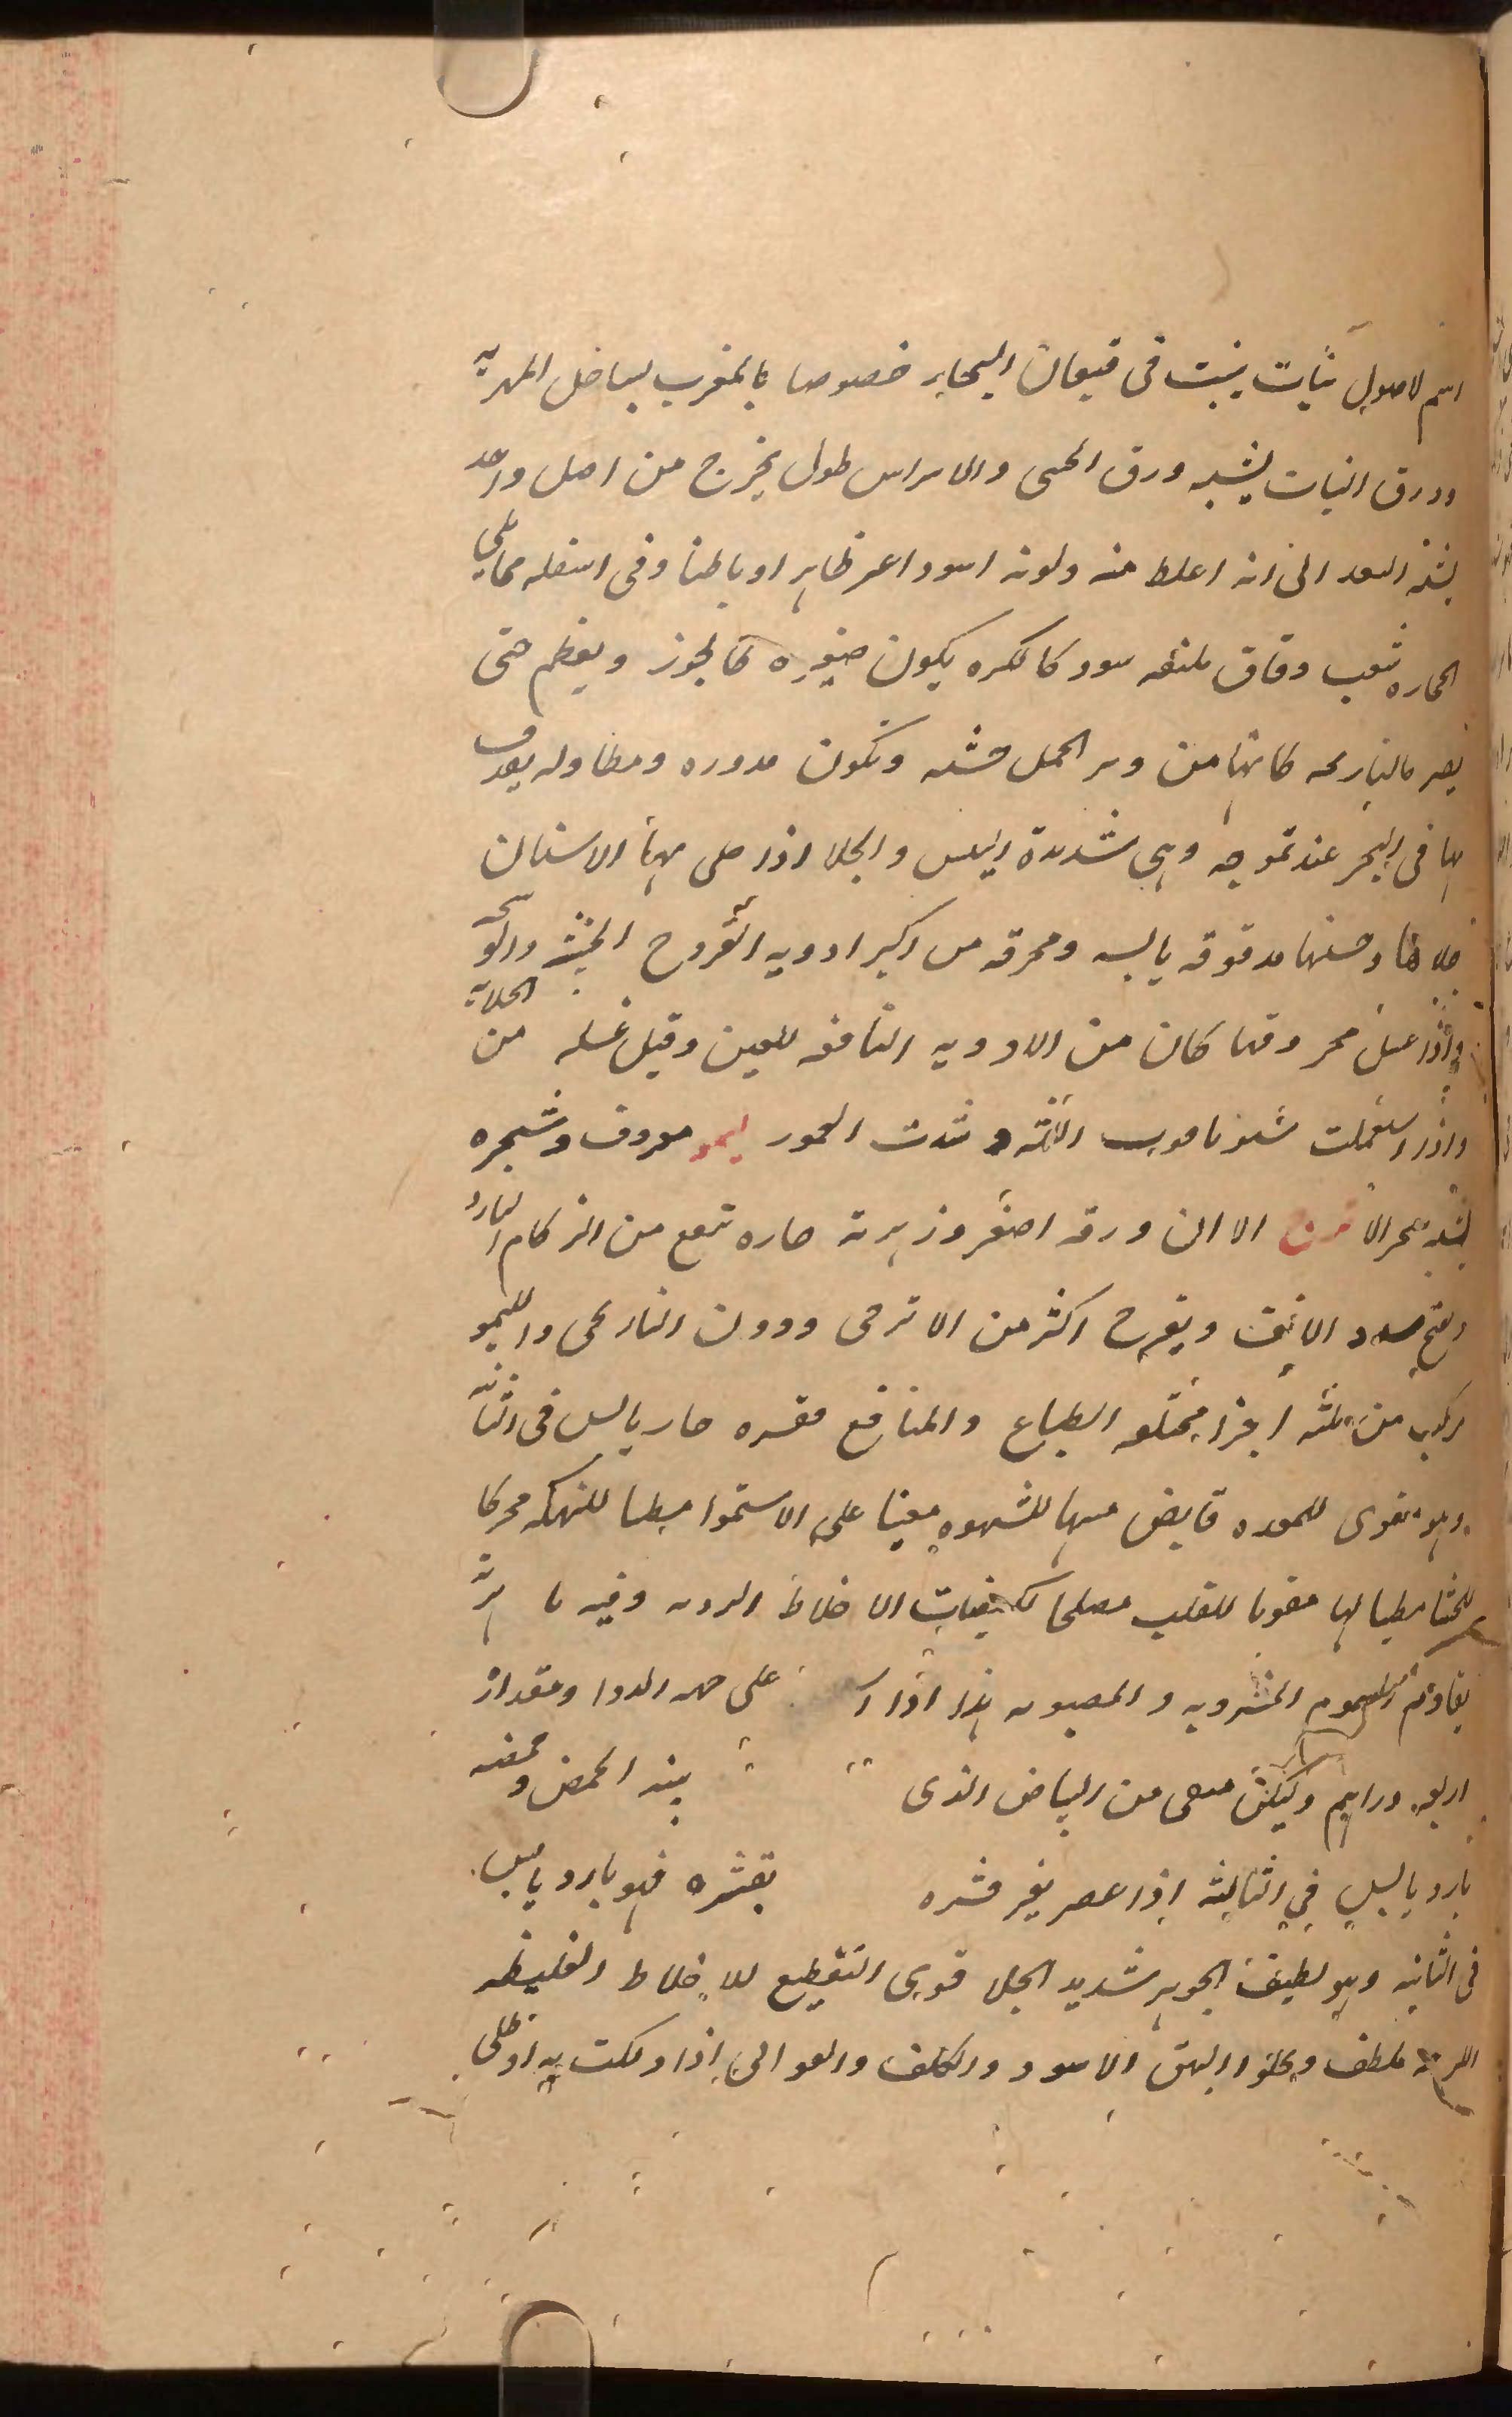 اسم لاصول نبات ينبت فى قيعان البحاير خصوصا بالمغرب بساحل المهرية
وورق النبات يشبه ورق الخنثى والاسراس طول يخرج من اصل واحد
يشبه السعد الى انه اغلظ منه ولونه اسود اغبر ظاهرا وباطنا وفى اسفله مما يلى
الحجاره شعب دقاق ملتفه سود كالكره يكون صغيره كالجوز ويعظم حتى
يصير كالنارنجه كانها من وبر الجمل خشنه وتكون مدوره ومطاوله يقذف
بها فى البحر عند تموجه وهى شديدة اليبس والجلا اذا حلى بها الاسنان
جلاها وحسنها مدقوقه يابسه ومحرقه من اكبر ادويه القروح الخبيثه والوسخه
واذا غسل محروقها كان من الادويه النافعه للعين وقيل غسله من الجلاية
واذا استعملت سنونا قوت اللثه وشدت العمور ليمو معروف وشجره
يشبه شجر الاترج الا ان ورقه اصغر وزهرته حاره تنفع من الزكام البارد
وتفتح سدد الانف ويفرح اكثر من الاترجى ودون النارنجى والليمو
مركب من ثلثه اجزا مختلفه الطباع والمنافع فقشره حار يابس فى الثانية
وهو مقوى للمعده قابض منبها للشهوه معينا على الاستمرا مطيبا للنكهه محركا
للجشا مطيبا لها مقويا للقلب مصلحا لكيفيات الاخلاط الرديه وفيه ترياقية
يقاوم السموم المشروبه والمصبوبه هذا اذا على جهه الدوا ومقدار
اربعه دراهم وليكن منقى من البياض الذى بينه الحمض وحمضه
بارد يابس فى الثالثه اذا عصر بغير قشره بقشره فهو بارد يابس
فى الثانيه وهو لطيف الجوهر شديد الجلا قوى التقطيع للاخلاط الغليظه
اللزجه ملطف ويجلوا البهق الاسود والكلف والقوابى اذا دلكت به او طلى